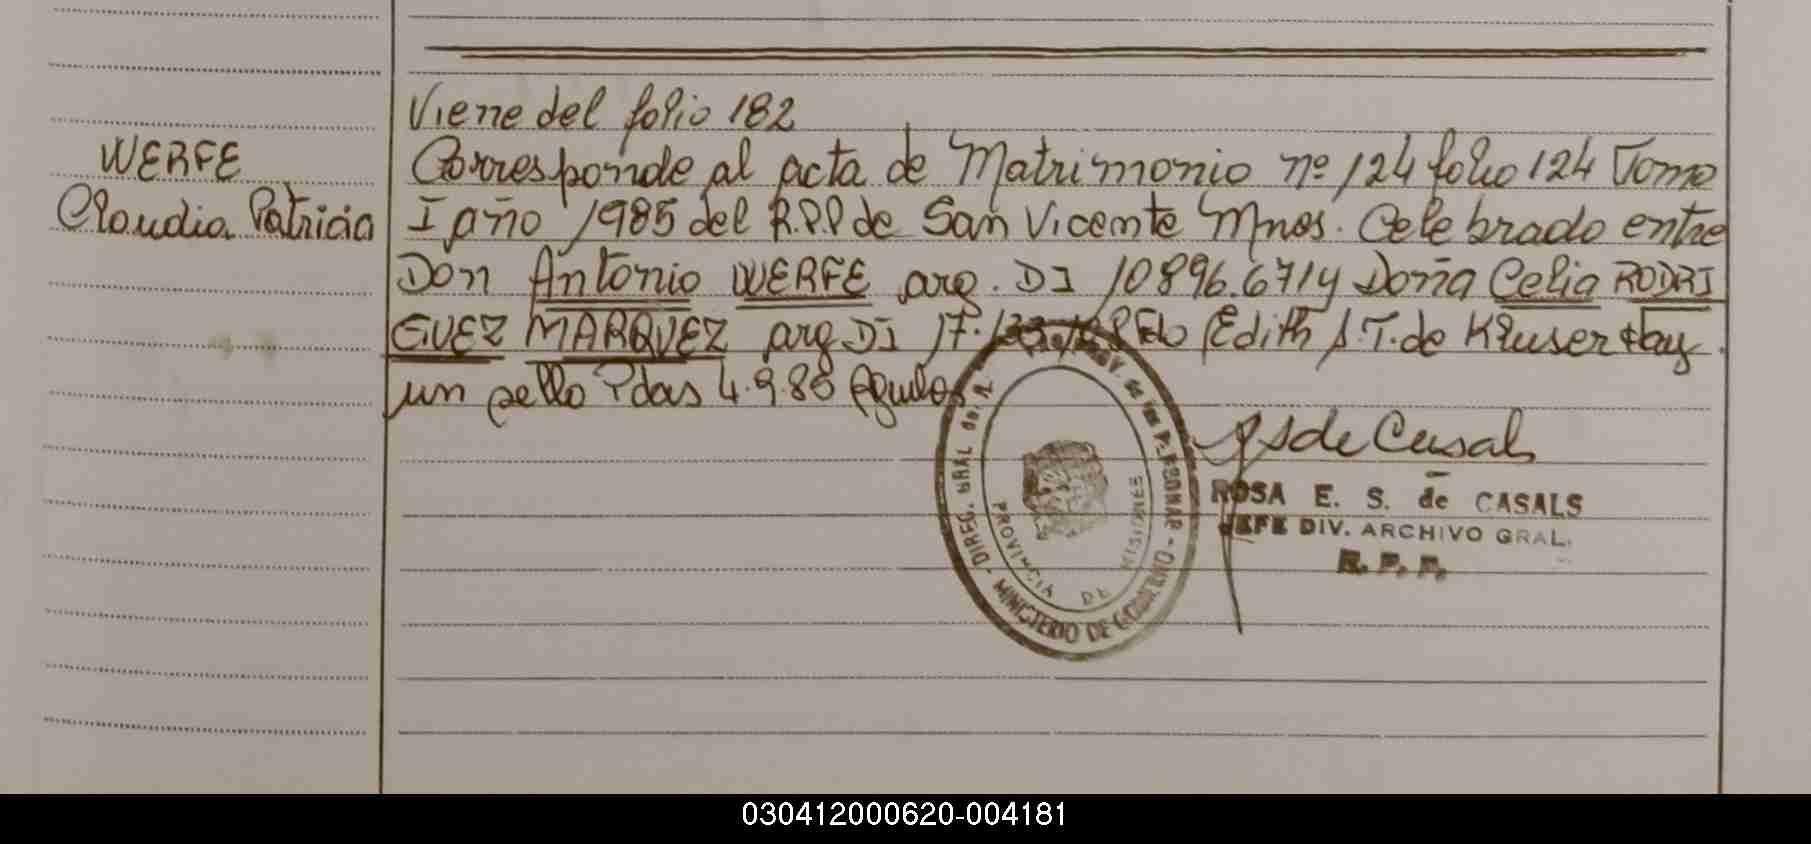 Viene del folio 182
WERFE
Claudia Patricia
Corresponde al acta de Matrimonio nº 124 folio 124 Tomo
I año 1985 del R.P.P de San Vicente Mnes. Celebrado entre
Don Antonio WERFE arg. DI 10896.671 y Doña Celia RODRI
GUEZ MARQUEZ arg DI 17. Fdo Edith S.T. de Kluser Hay
un sello Pdas 4.9.86
S de Casals
ROSA E. S. de CASALS
JEFE DIV. ARCHIVO GRAL.
R. P. P.
DIREC. GRAL del R. PROV. de las PERSONAS - MINISTERIO DE GOBIERNO
PROVINCIA DE MISIONES
030412000620-004181